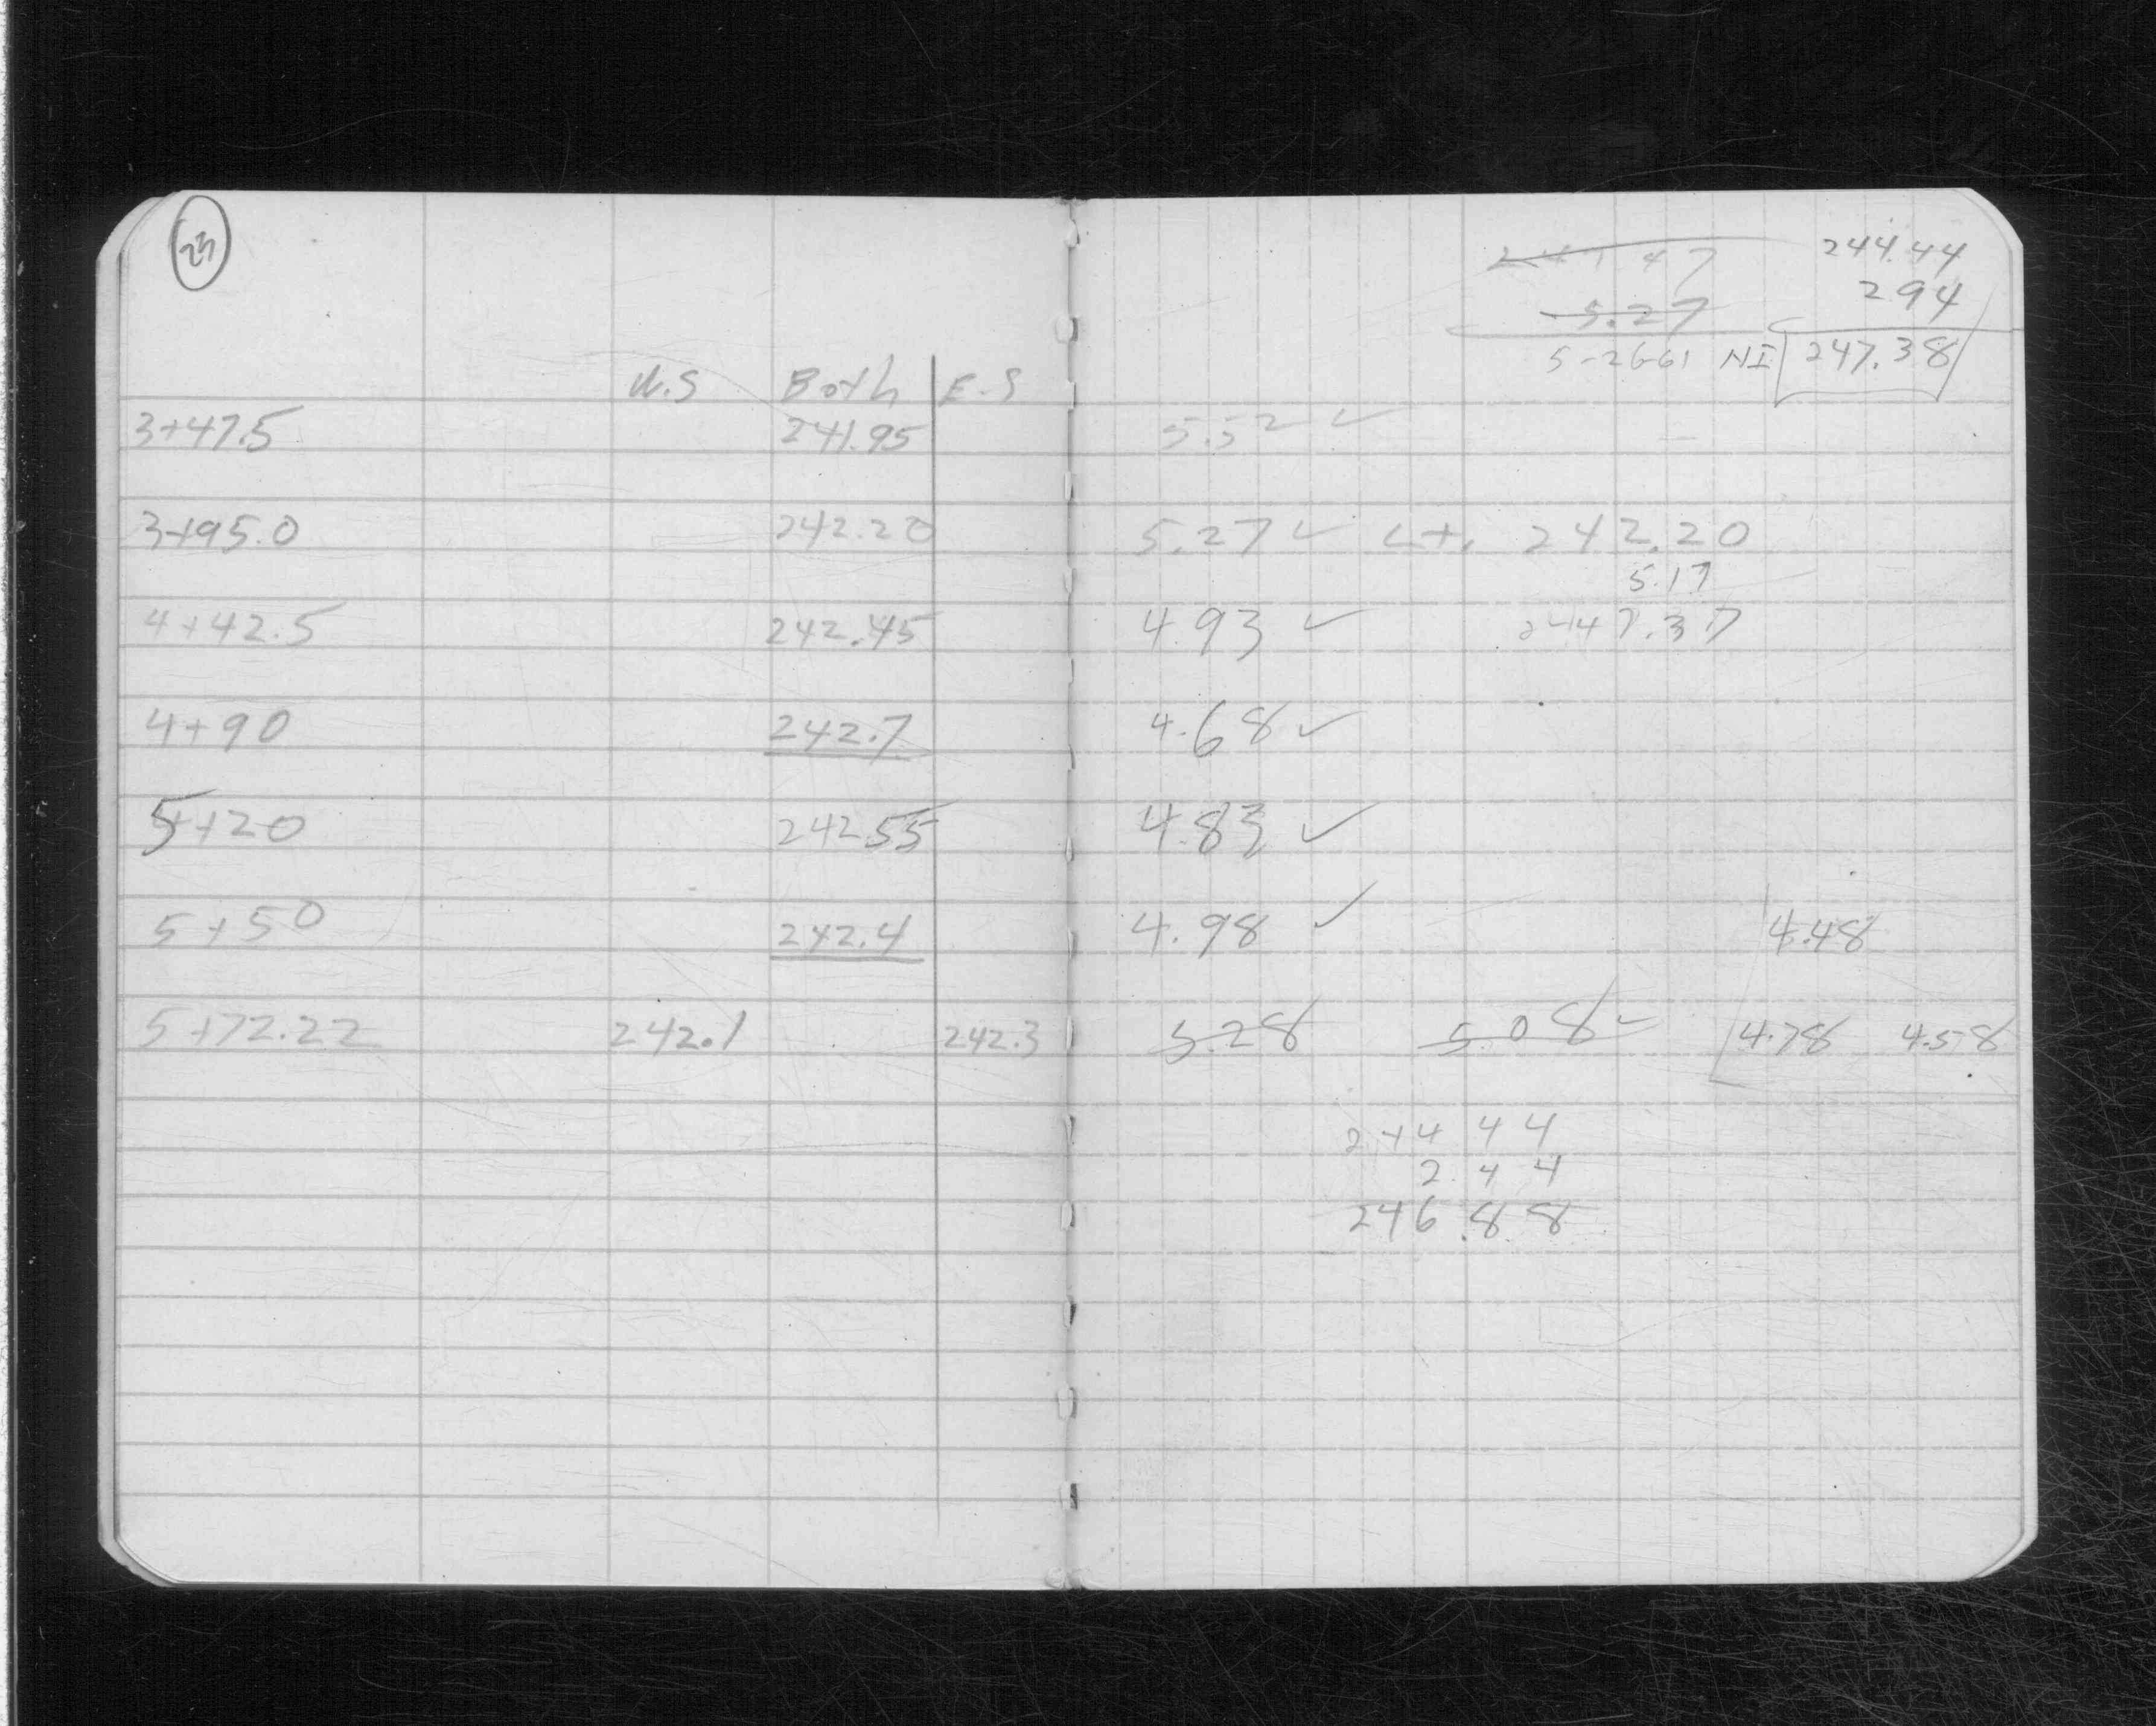 23
W.S Both E.S
3+47.5 241.95
3+95.0 242.20
4+42.5 242.45
4+90 242.7
5+20 242.55
5+50 242.4
5+72.22 242.1 242.3
241 47 244.44
5.27 294
5-26-61 HI 247.38
5.52 ✓
5.27 ✓ Lt. 242.20
5.17
4.93 ✓ 247.37
4.68 ✓
4.83 ✓
4.98 ✓ 4.48
5.28 5.08 ✓ 4.78 4.58
244 44
2.44
246.88